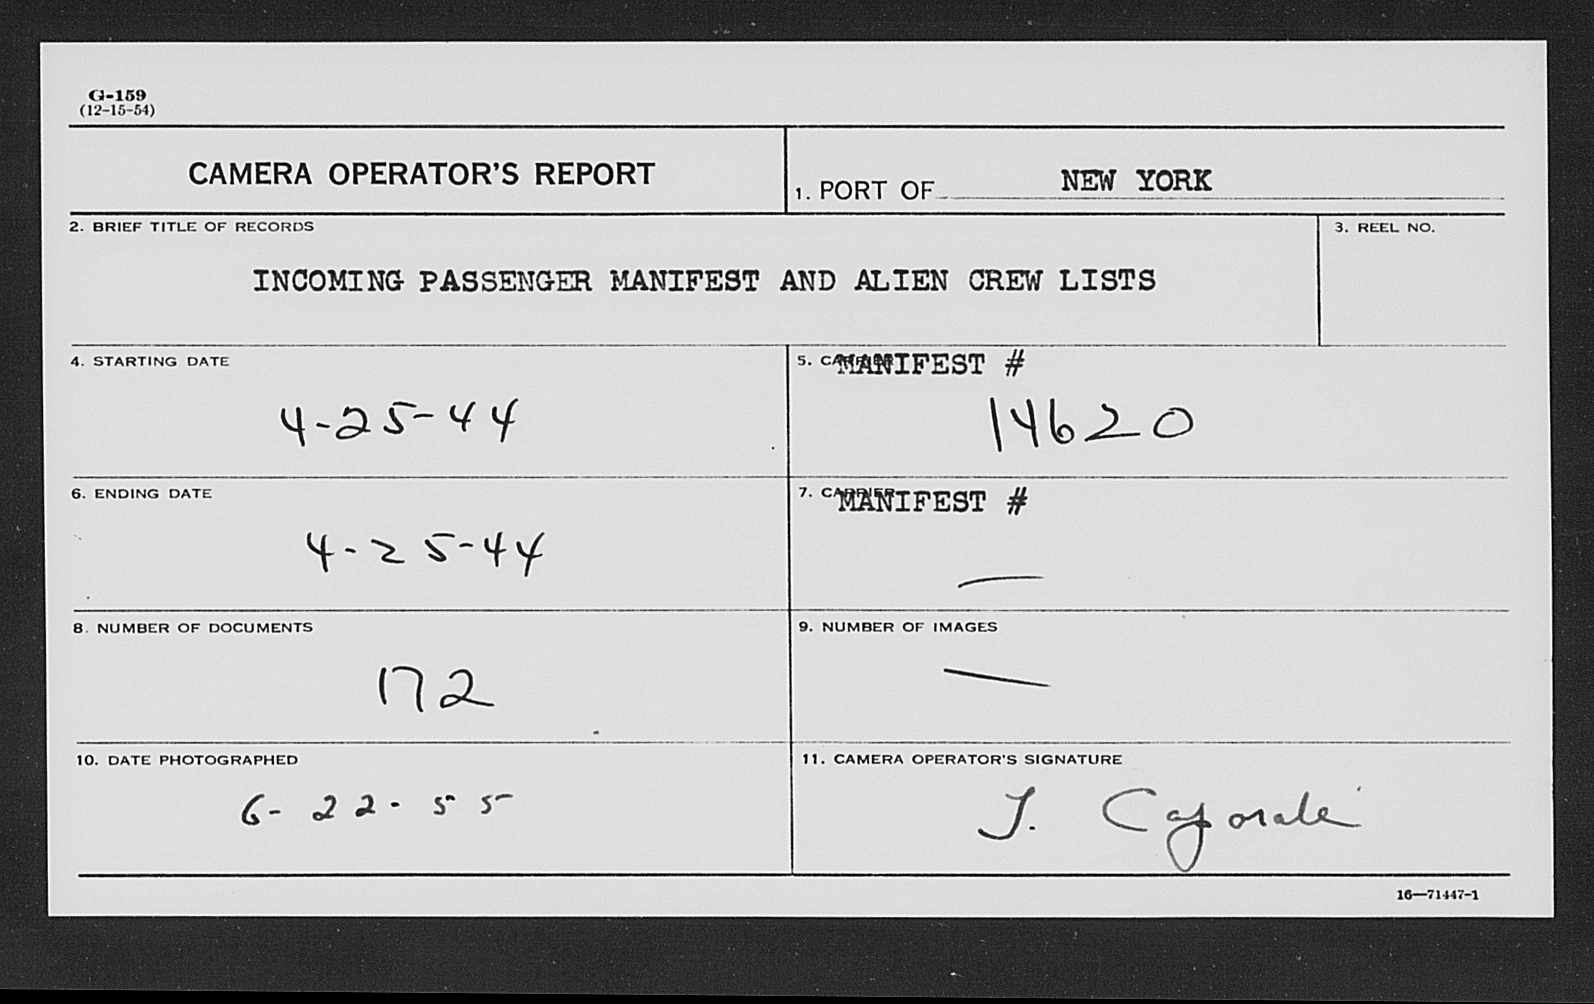 G-159
(12-15-54)
CAMERA OPERATOR'S REPORT
1. PORT OF NEW YORK
2. BRIEF TITLE OF RECORDS
INCOMING PASSENGER MANIFEST AND ALIEN CREW LISTS
3. REEL NO.
4. STARTING DATE
4-25-44
5. CARRIER MANIFEST #
14620
6. ENDING DATE
4-25-44
7. CARRIER MANIFEST #
—
8. NUMBER OF DOCUMENTS
172
9. NUMBER OF IMAGES
—
10. DATE PHOTOGRAPHED
6-22-55
11. CAMERA OPERATOR'S SIGNATURE
J. Caporale
16—71447-1